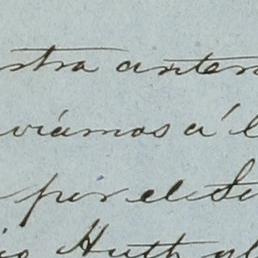 stra anter
viámos a' l
por el Se
Huth